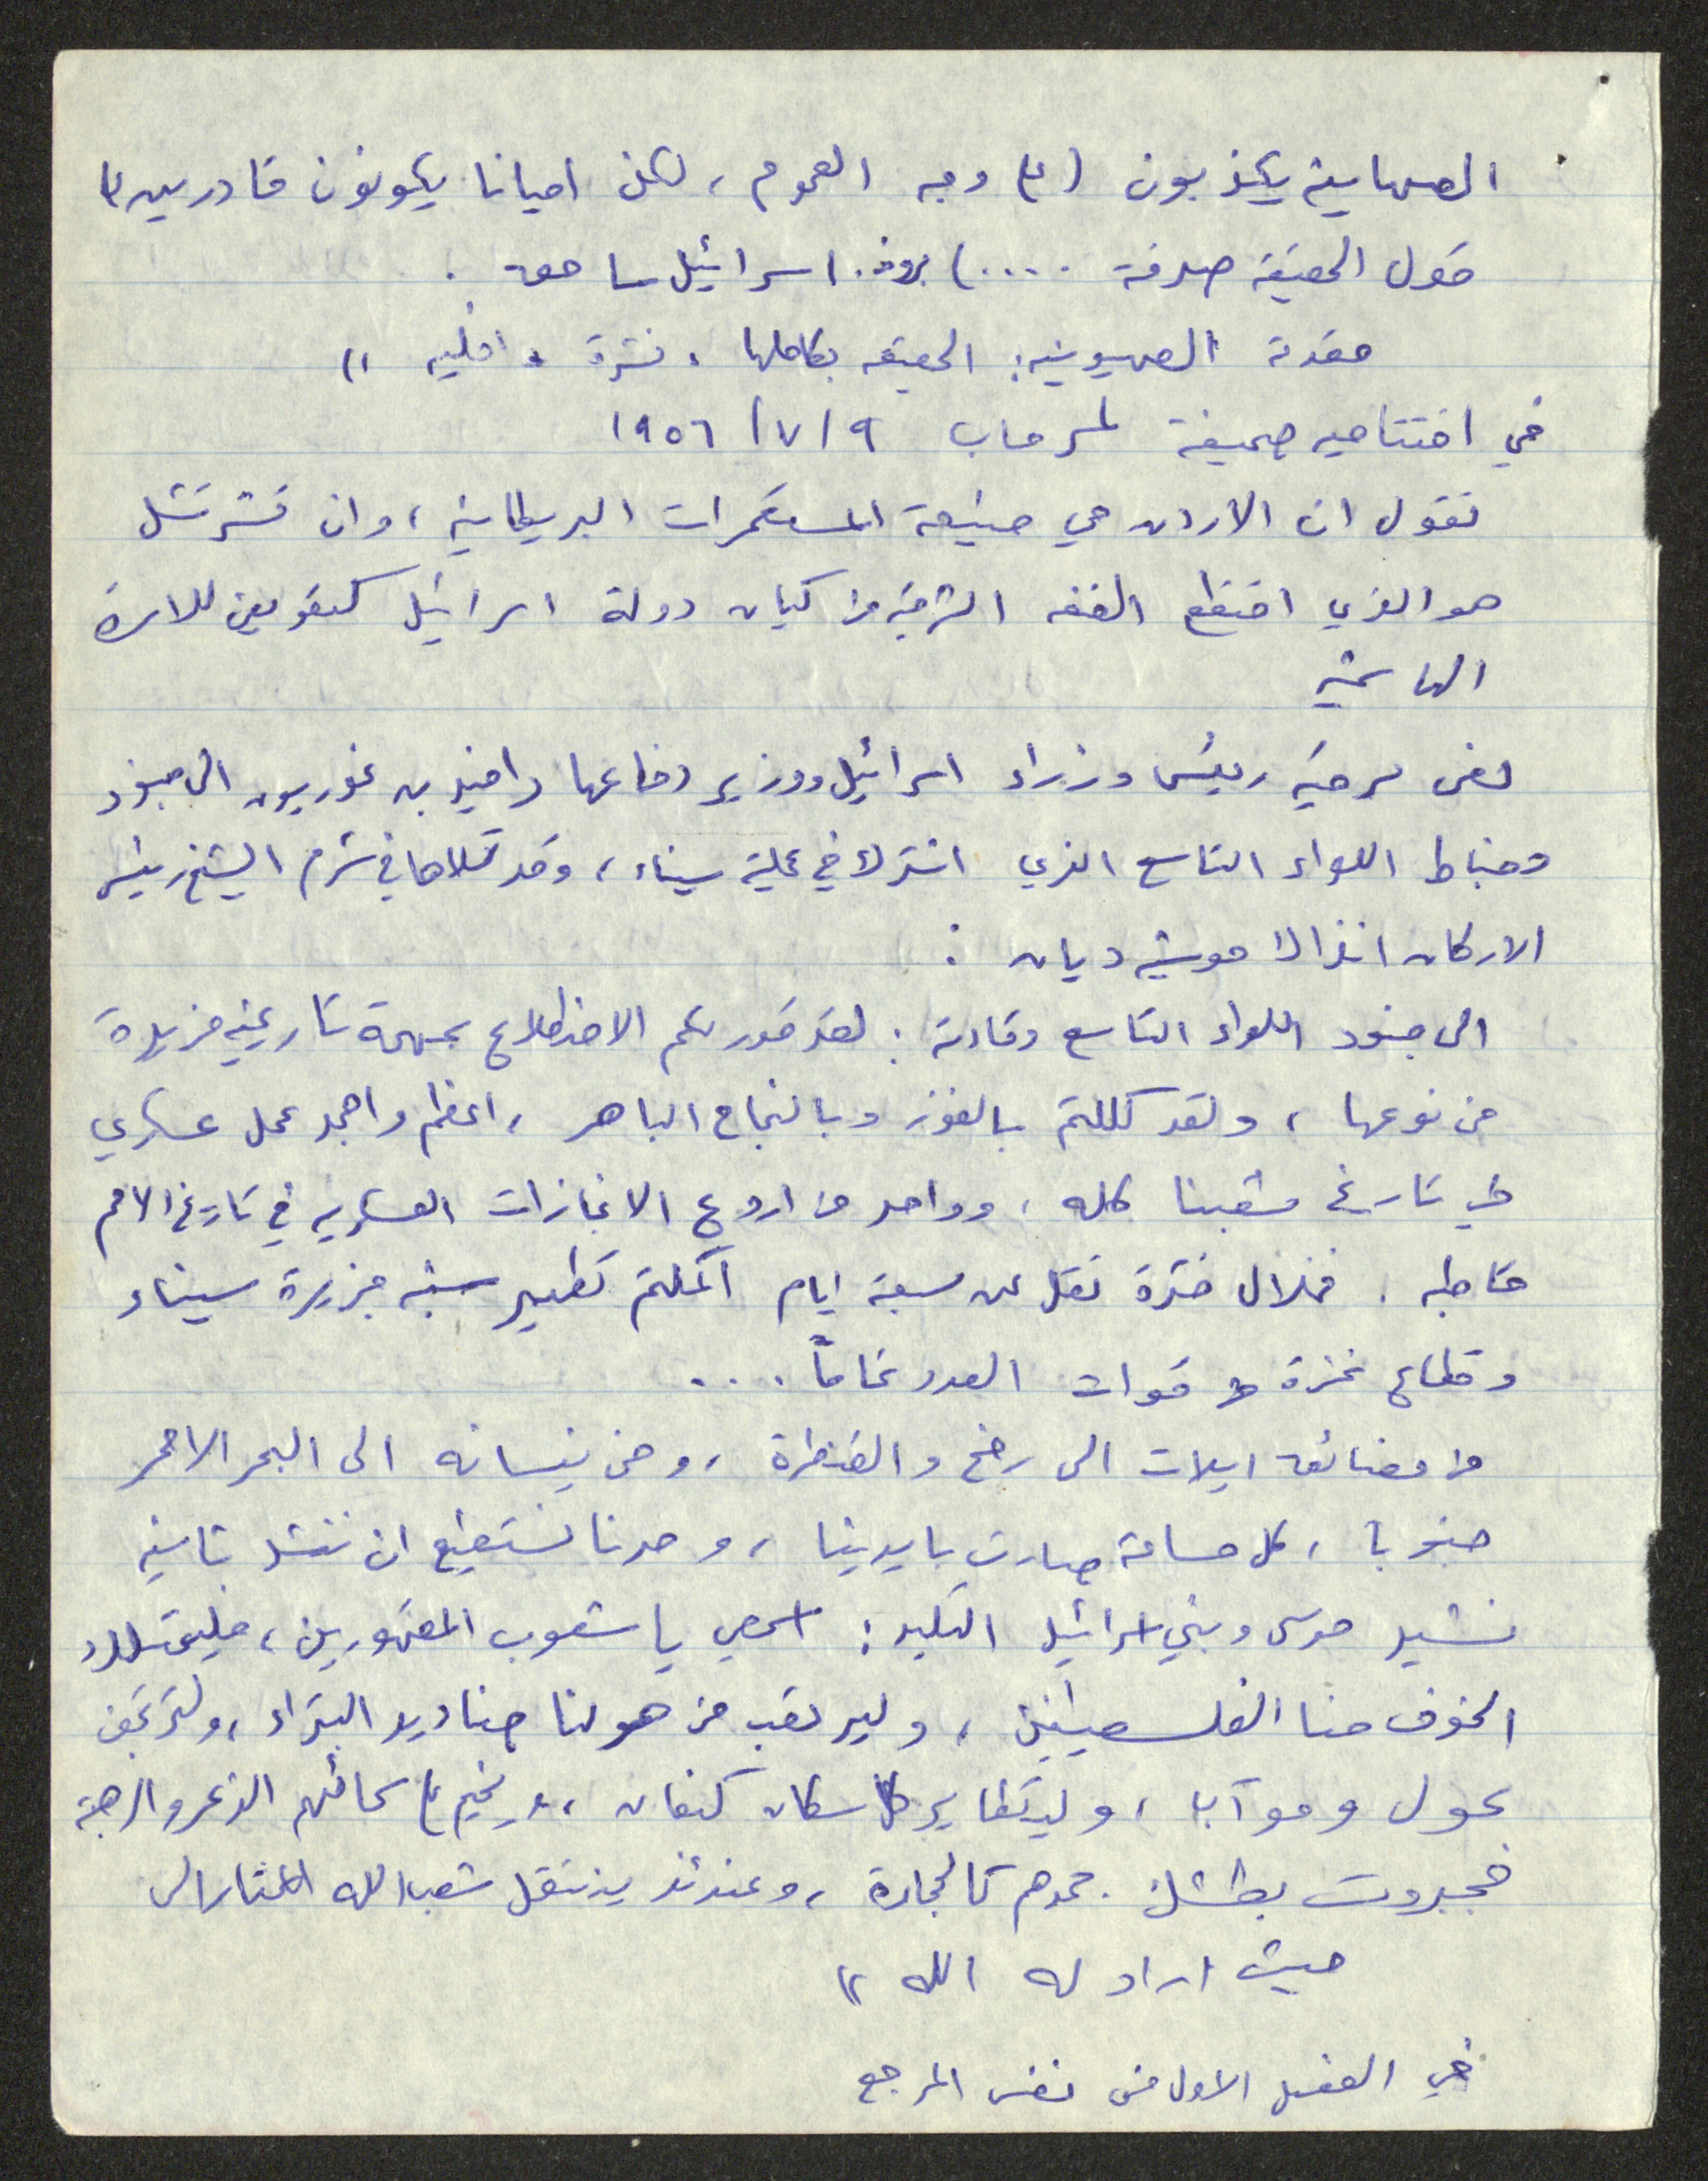 الصهاينة يكذبون (على وجه العموم، لكن احيانا يكونون قادرين على
قول الحقيقة صدفة ....) بروف. اسرائيل ساحق.
مقدمة الصهيونية: الحقيقة بكاملها. نشرة داخليه "
في افتتاحيه صحيفة لمرحاب ٩/٧/١٩٥٦
نقول ان الاردن هي صنيعة المستعمرات البريطانية، وان تشرتشل
هو الذي اقتطع الضفه الشرقية من كيان دولة اسرائيل كتعويض للاسرة
الهاشمية
نص برقية رئيس وزراء اسرائيل ووزير دفاعها دافيد بن غوريون الى جنود
وضباط اللواء التاسع الذي اشترك في عملية سيناء، وقد تلاها في شرم الشيخ رئيس
الاركان انذاك موشيه ديان :
الى جنود اللواء التاسع وقادته: لقد قدر لكم الاضطلاع بمهمة تاريخية فريدة
من نوعها، ولقد كللتم بالفوز وبالنجاح الباهر، اعظم وامجد عمل عسكري
في تاريخ شعبنا كله، وواحد من اروع الانجازات العسكريه في تاريخ الامم
قاطبه. فخلال فترة تقل عن سبعة ايام اكملتم تطهير شبه جزيرة سيناء
وقطاع غزة من قوات العدو تماماً...
من مضائق ايلات الى رفح والقنطرة، ومن نيسانه الى البحر الاحمر
جنوبا، كل مساحة صارت بايدينا، وحدنا نستطيع ان ننشد ثانية
نشيد موسى وبني اسرائيل التليد: اسمعي يا شعوب المقهورين، فليتملك
الخوف منا الفلسطينيين، وليرتعب من هولنا صناديد البتراء، ولترتجف
بحول وموآبا، وليتطاير كل سكان كنعان، وليخيم على سمائهم الذعر والرهبة
فجبروت بطشك جمدهم كالحجارة، وعندئذ ينتقل شعب الله المختار الى
حيث اراد له الله "
في الفصل الاول من نفس المرجع